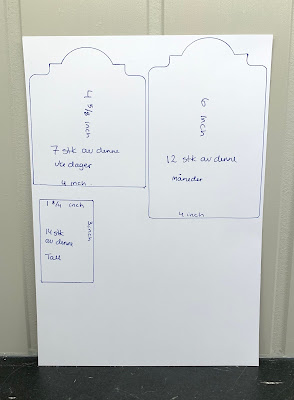 4 5/8 inch
7 stk av denne
uke dager
4 inch
6 inch
12 stk av denne
måneder
4 inch
1 3/4 inch
3 inch
14 stk
av denne
Tall